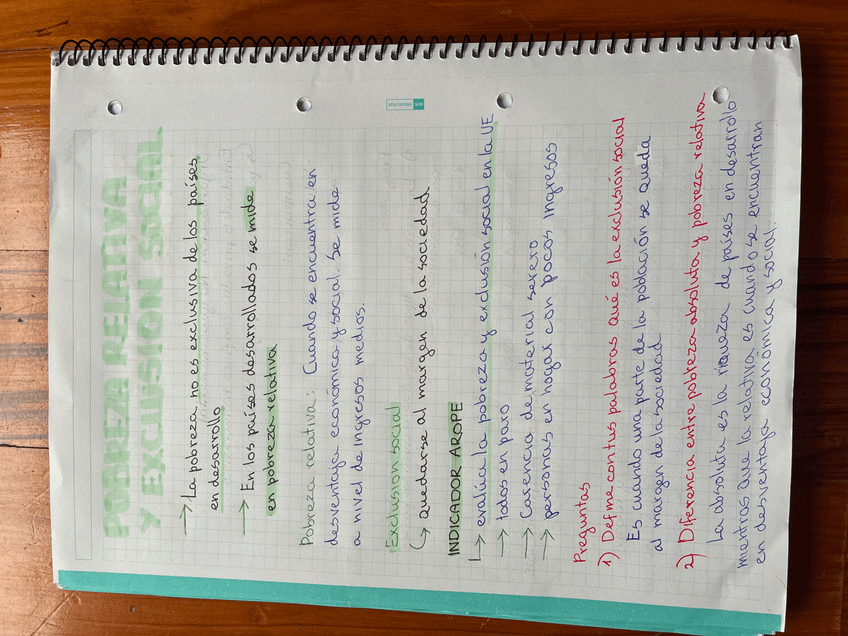 POBREZA RELATIVA
Y EXCLUSIÓN SOCIAL
→ La pobreza no es exclusiva de los países
en desarrollo
→ En los países desarrollados se mide
en pobreza relativa
Pobreza relativa: Cuando se encuentra en
desventaja económica y social. Se mide
a nivel de ingresos medios.
Exclusión social
↳ quedarse al margen de la sociedad
INDICADOR AROPE
↳ evalúa la pobreza y exclusión social en la UE
→ todos en paro
→ Carencia de material severo
→ personas en hogar con pocos ingresos
Preguntas
1) Define con tus palabras qué es la exclusión social
Es cuando una parte de la población se queda
al margen de la sociedad
2) Diferencia entre pobreza absoluta y pobreza relativa
La absoluta es la riqueza de países en desarrollo
mientras que la relativa es cuando se encuentran
en desventaja económica y social.